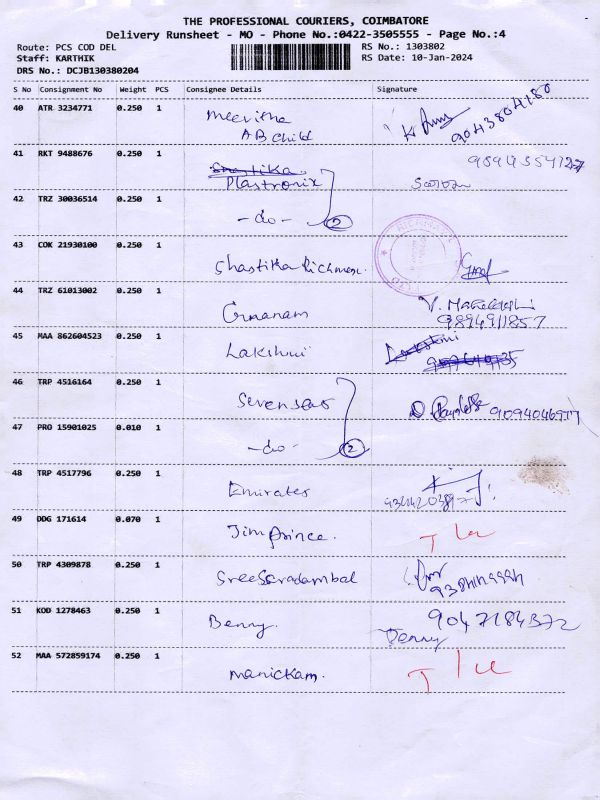 THE PROFESSIONAL COURIERS, COIMBATORE
Delivery Runsheet - MO - Phone No.:0422-3505555 - Page No.:4
Route: PCS COD DEL
RS No.: 1303802
Staff: KARTHIK
RS Date: 10-Jan-2024
DRS No.: DCJB130380204
S No Consignment No Weight PCS Consignee Details Signature
40 ATR 3234771 0.250 1 Meeritha
AB Child
9043804180
41 RKT 9488676 0.250 1 Shastika
Plastronix
98943554127
42 TRZ 30036514 0.250 1 -do- 2
43 COK 21930100 0.250 1 Shastika Richmex.
44 TRZ 61013002 0.250 1 Gnanam
9894911857
45 MAA 862604523 0.250 1 Lakshmi
Lakshmi
46 TRP 4516164 0.250 1 Sevenseas
47 PRO 15901025 0.010 1 -do- 2
48 TRP 4517796 0.250 1 Emirates
49 DDG 171614 0.070 1 Jimprince.
50 TRP 4309878 0.250 1 SreeSaradambal
51 KOD 1278463 0.250 1 Benny.
9047184372
Jenny
52 MAA 572859174 0.250 1 Manickam.